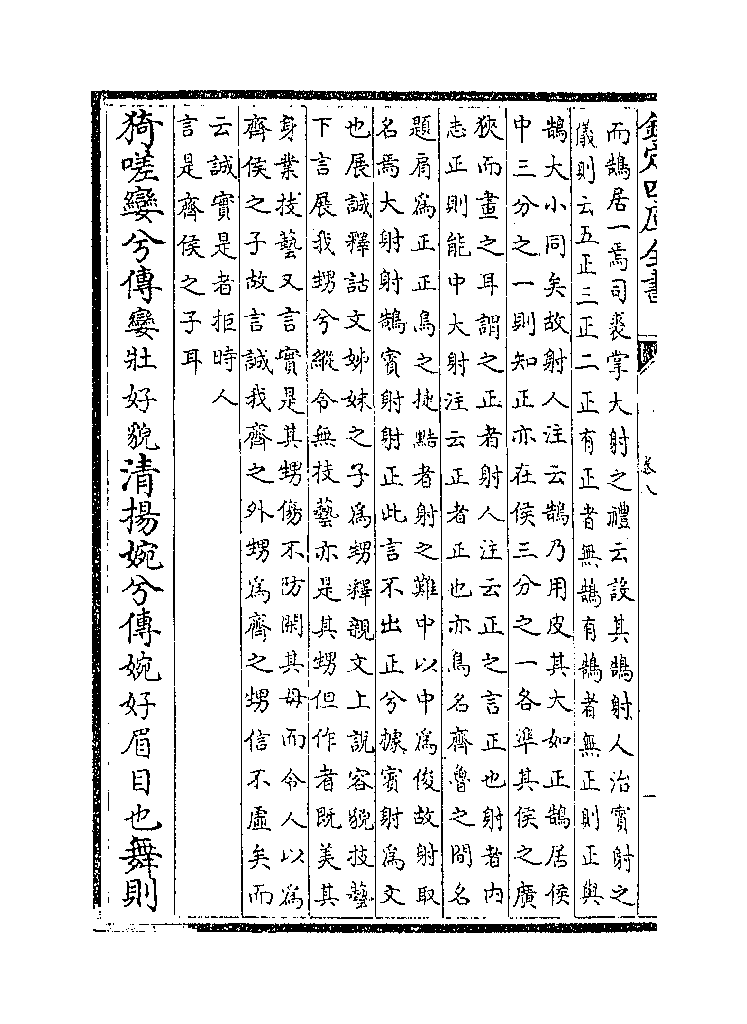 欽定四庫全書
卷八
而鵠居一焉司裘掌大射之禮云設其鵠射人治賓射之
儀則云五正三正二正有正者無鵠有鵠者無正則正與
鵠大小同矣故射人注云鵠乃用皮其大如正鵠居侯
中三分之一則知正亦在侯三分之一各準其侯之廣
狹而畫之耳謂之正者射人注云正之言正也射者内
志正則能中大射注云正者正也亦鳥名齊魯之間名
題肩為正正鳥之捷黠者射之難中以中為俊故射取
名焉大射射鵠賓射射正此言不出正兮據賓射為文
也展誠釋詁文姊妹之子為甥釋親文上說容貌技藝
下言展我甥兮縱令無技藝亦是其甥但作者既美其
身業技藝又言實是其甥傷不防閑其母而令人以為
齊侯之子故言誠我齊之外甥為齊之甥信不虛矣而
云誠實是者拒時人
言是齊侯之子耳
猗嗟孌兮傳孌壯好貌清揚婉兮傳婉好眉目也舞則